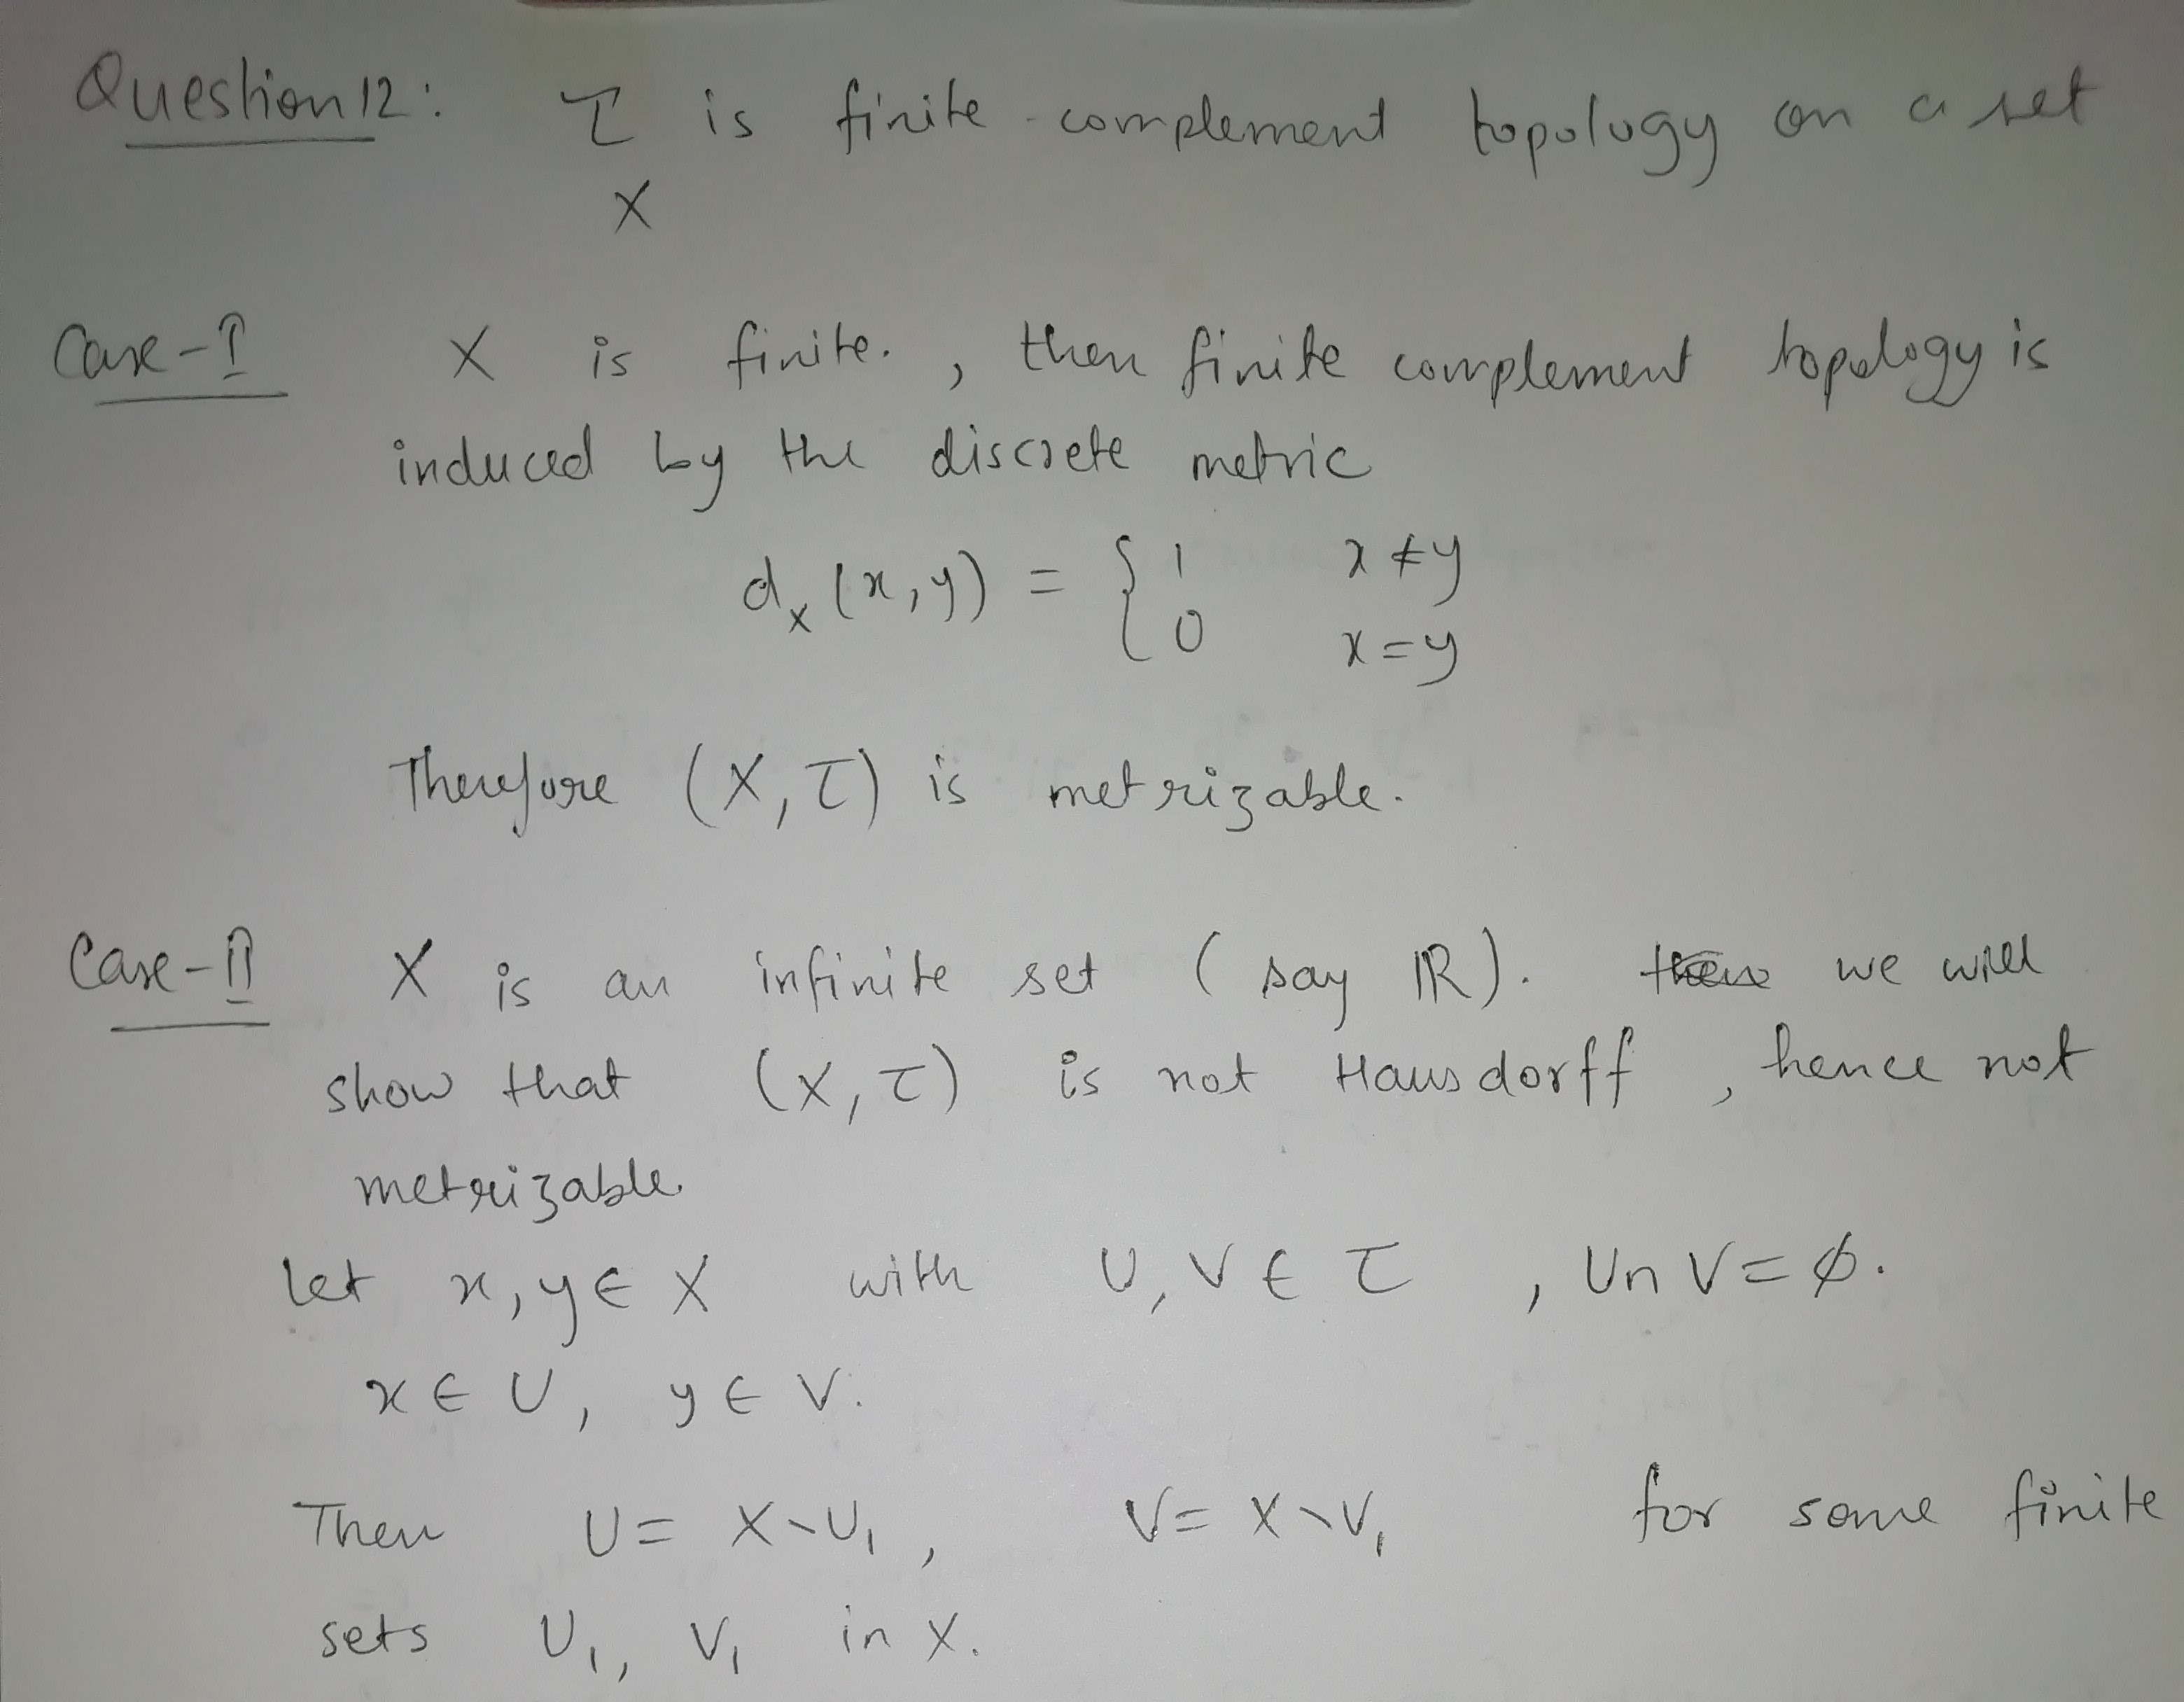 Question 12: τ is finite complement topology on a set
X
Case-I X is finite. , then finite complement topology is
induced by the discrete metric
d_X (x,y) = { 1 x ≠ y
0 x = y
Therefore (X, τ) is metrizable.
Case-II X is an infinite set ( say ℝ). we will
show that (X, τ) is not Hausdorff , hence not
metrizable.
Let x, y ∈ X with U, V ∈ τ , U ∩ V = ∅.
x ∈ U, y ∈ V.
Then U = X \ U₁ , V = X \ V₁ for some finite
sets U₁, V₁ in X.